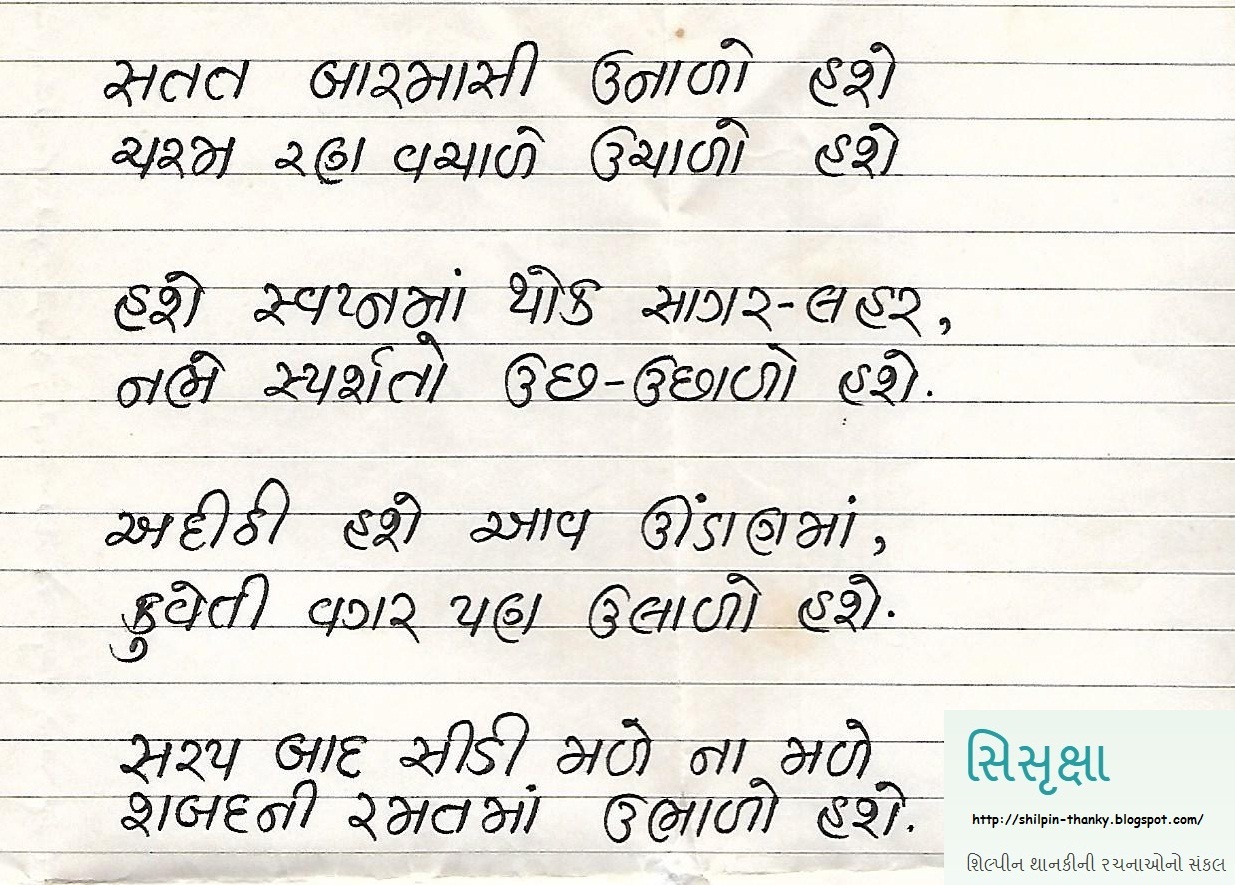 સતત બારમાસી ઉનાળો હશે
ચરમ રણ વચાળે ઉચાળો હશે
હશે સ્વપ્નમાં થોક સાગર-લહર,
નભે સ્પર્શતો ઉછ-ઉછાળો હશે.
અદીઠી હશે આવ ઊંડાણમાં,
કુવેતી વગર પણ ઉલાળો હશે.
સરપ બાદ સીડી મળે ના મળે
શબદની રમતમાં ઉભાળો હશે.
સિસૃક્ષા
http://shilpin-thanky.blogspot.com/
શિલ્પીન થાનકીની રચનાઓનો સંકલ